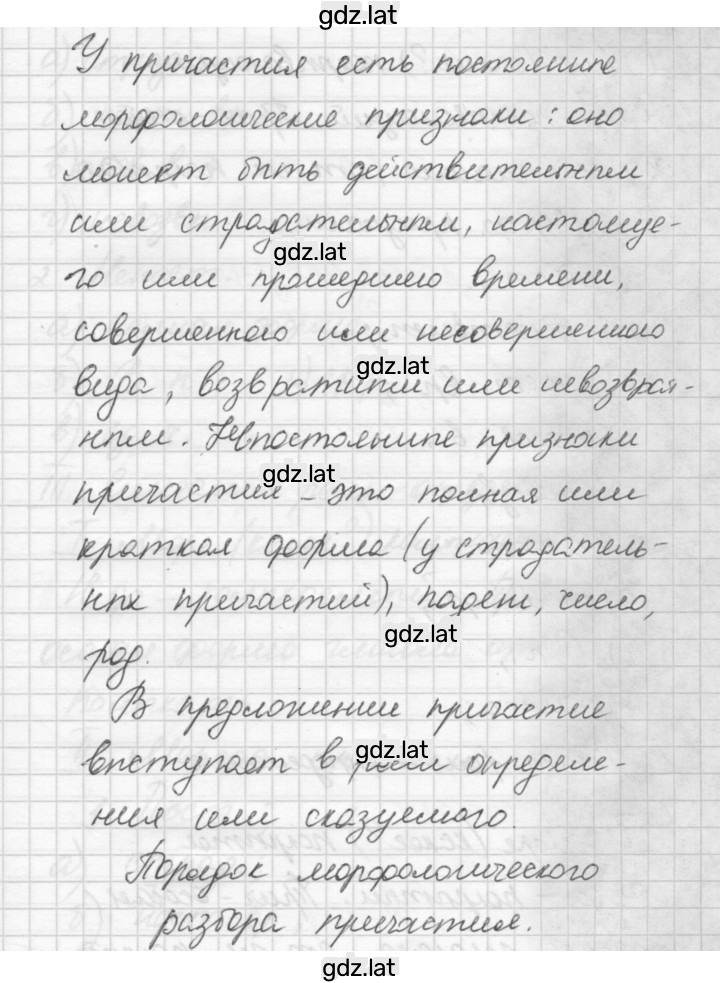 gdz.lat
У причастия есть постоянные
морфологические признаки: оно
может быть действительным
или страдательным, настояще-
gdz.lat
го или прошедшего времени,
совершенного или несовершенного
gdz.lat
вида, возвратным или невозврат-
ным. Непостоянные признаки
gdz.lat
причастия – это полная или
краткая форма (у страдатель-
ных причастий), падеж, число,
gdz.lat
род.
В предложении причастие
выступает в роли определе-
gdz.lat
ния или сказуемого.
Порядок морфологического
разбора причастия.
gdz.lat